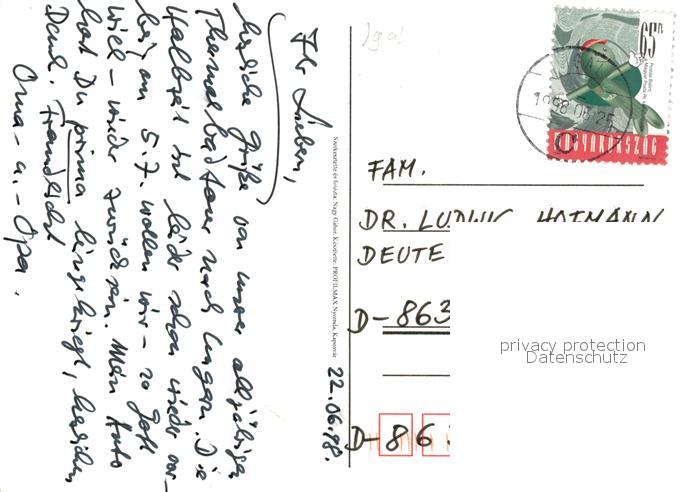 Ihr Lieben,
herzliche Grüße von unserer alljährigen
Thermalbadtour nach Ungarn. Die
Halbzeit ist leider schon wieder vor-
bei, am 5.7. wollen wir - so Gott
will - wieder zurück sein. Mein Auto
hast Du prima hingekriegt, herzlichen
Dank.
Oma - u. - Opa.
22.06.98.
Szerkesztette és fotózta: Nagy Gábor. Készítette: PROFILMAX Nyomda, Kaposvár
Igal
65Ft
MAGYARORSZÁG
1998.06.25
FAM.
DR. LUDWIG HOFMANN
DEUTE
D-863
D-86
privacy protection
Datenschutz